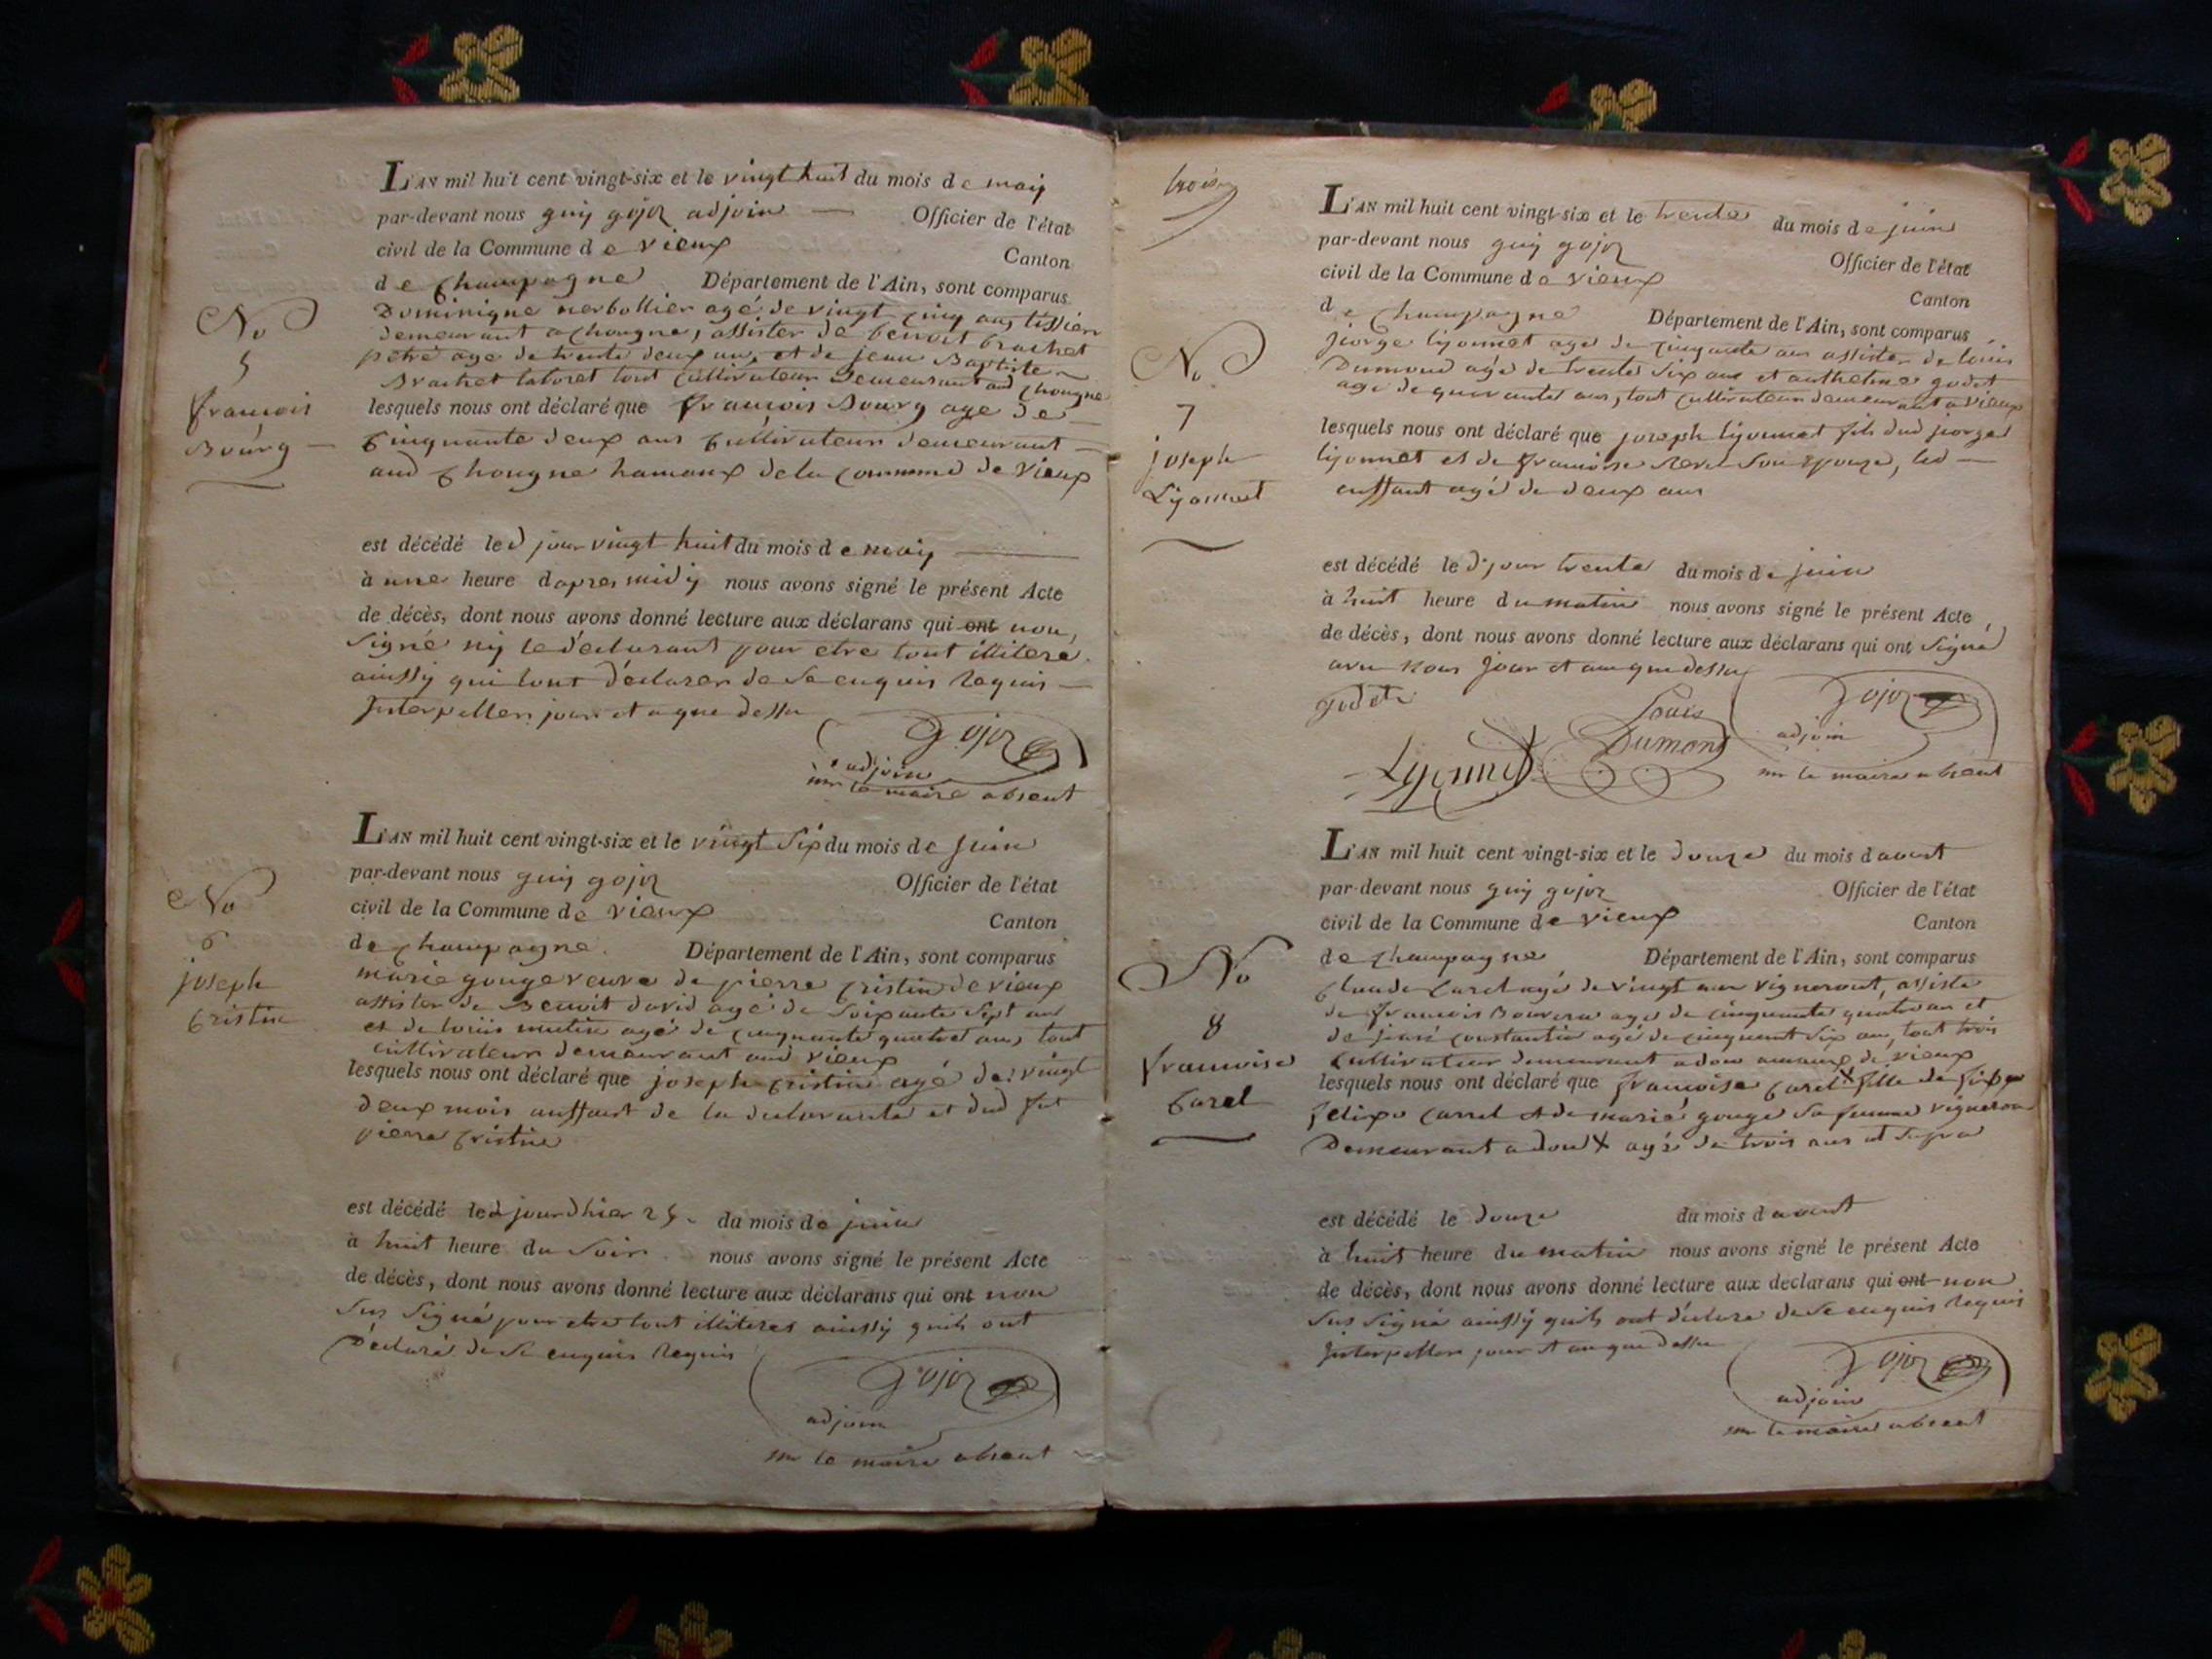 L'AN mil huit cent vingt-six et le vingt huit du mois de maiy
par-devant nous guy gojoz adjoin Officier de l'état
civil de la Commune de vieux
Canton
de Champagne Département de l'Ain, sont comparus
Dominique nerbollier agé de vingt cinq ans tissier
demeurant a Chongne, assister de benoit brachet
agé de trente deux ans, et de jean Baptiste
Brachet tout cultivateur demeurant aud Chongne
No
5
francois
Bourg
lesquels nous ont déclaré que francois Bourg age de
Cinquante deux ans Cultivateur demeurant
aud Chongne hamaux de la commune de Vieux
est décédé led jour vingt huit du mois de maiy
à une heure dapres midy nous avons signé le présent Acte
de décès, dont nous avons donné lecture aux déclarans qui ont non
signé ny le déclarant pour etre tout illitere
ainssy qui lont déclarer de se enquis requis
Interpeller jour et a que dessu
Gojoz
adjoin
mr le maire absent
L'AN mil huit cent vingt-six et le vingt six du mois de juin
par-devant nous guy gojoz Officier de l'état
civil de la Commune de vieux
Canton
de Champagne. Département de l'Ain, sont comparus
marie gouge veuve de pierre Cristin de vieux
assister de Benoit david agé de soixante sept ans
et de louis mutin agé de cinquante quatre ans, tout
cultivateur demeurant aud vieux
No
6
joseph
Cristin
lesquels nous ont déclaré que joseph cristin agé de vingt
deux mois anffant de la declarante et dud fut
pierre Cristin
est décédé led jourdhier 25. du mois de juin
à huit heure du soir. nous avons signé le présent Acte
de décès, dont nous avons donné lecture aux déclarans qui ont non
sus signé pour etre tout illiteres ainssy quils ont
Déclaré de se enquis requis
Gojoz
adjoin
mr le maire absent
trois
L'AN mil huit cent vingt-six et le trente du mois de juin
par-devant nous guy gojoz
Officier de l'état
civil de la Commune de vieux
Canton
de Champagne Département de l'Ain, sont comparus
jiorge lyonnet age de cinquante ans assister de louis
Dumond agé de trente six ans et anthelme godet
age de quarante ans, tout cultivateur demeurant a vieux
No
7
joseph
Lyonnet
lesquels nous ont déclaré que joseph lyonnet fils dud jiorge
lyonnet et de francoise revel son epouze, led
anffant agé de deux ans
est décédé le d. jour trente du mois de juin
à huit heure du matin nous avons signé le présent Acte
de décès, dont nous avons donné lecture aux déclarans qui ont signé
avec nous jour et an que dessu
godet
Louis
Dumond
Lyonnet
Gojoz
adjoin
mr le maire absent
L'AN mil huit cent vingt-six et le douze du mois daoust
par-devant nous guy gojoz Officier de l'état
civil de la Commune de vieux Canton
de Champagne Département de l'Ain, sont comparus
Claude Carel agé de vingt ans vigneront, assisté
de francois agé de cinquante quatre ans et
de constantin agé de cinquant six ans, tout trois
Cultivateur demeurant a dou amaux de vieux
No
8
francoise
Carel
lesquels nous ont déclaré que francoise Carel fille de
felipe carrel et de marie gouge sa femme vigneron
Demeurant a dou X agée de trois ans et
est décédé le douze du mois daoust
à huit heure du matin nous avons signé le présent Acte
de décès, dont nous avons donné lecture aux déclarans qui ont non
sus signé ainssy quils ont déclare de se enquis requis
Interpeller jour et an que dessu
Gojoz
adjoin
mr le maire absent